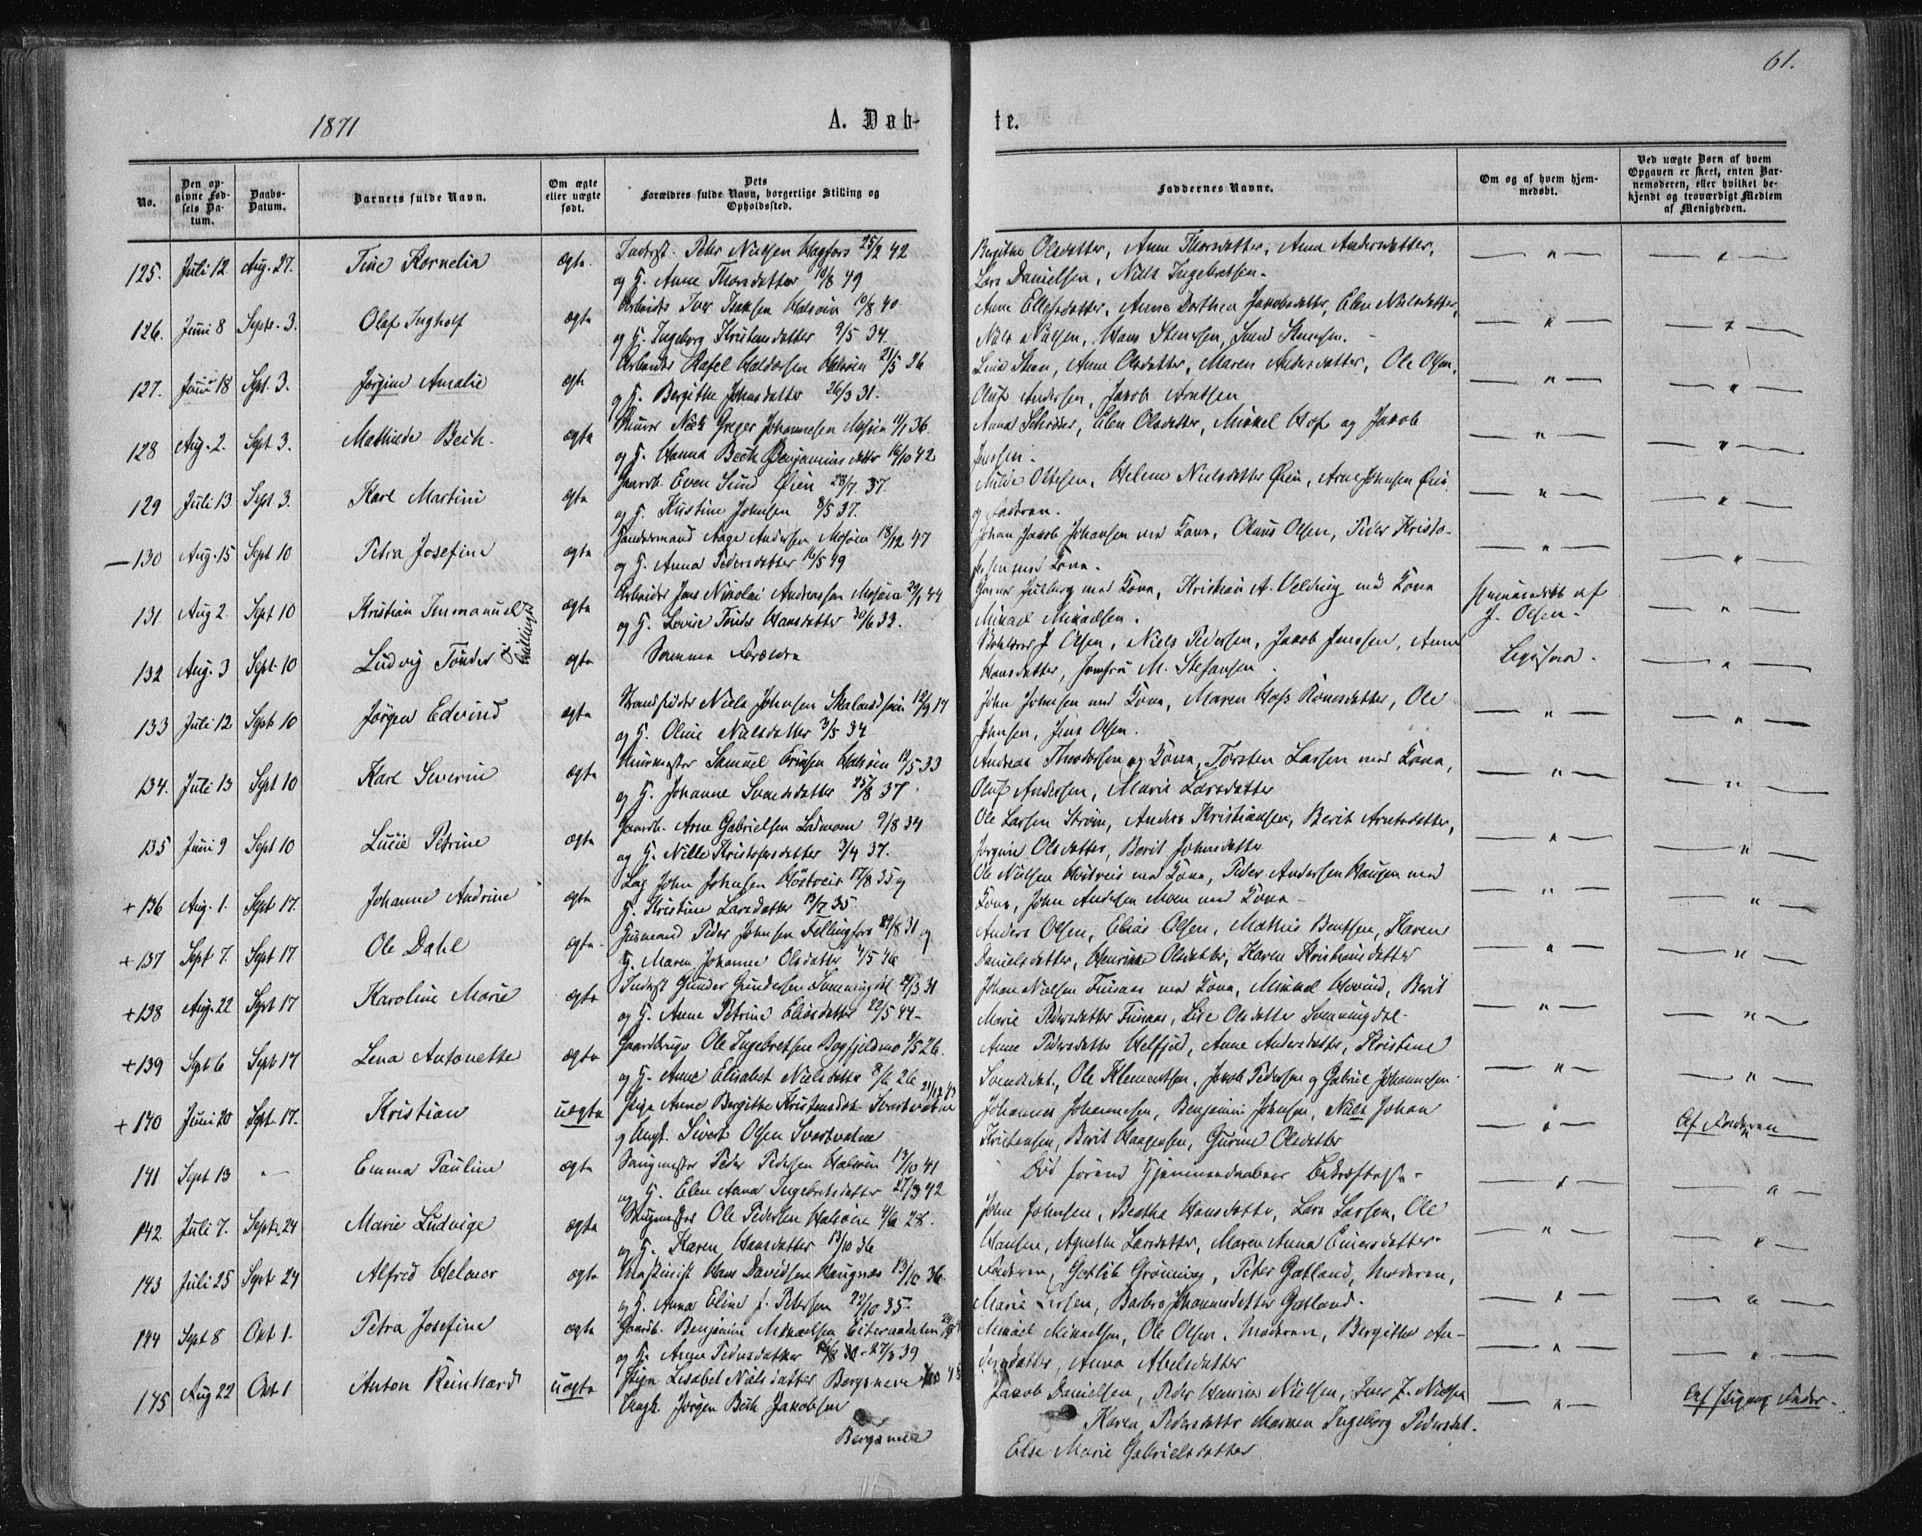 61.
1871
A. Døb-
te.
No.
Den op-
givne Fød-
sels Da-
tum.
Daabs-
Datum.
Barnets fulde Navn.
Om ægte
eller uægte
født.
Dets
Forældres fulde Navn, borgerlige Stilling og
Opholdssted.
Faddernes Navne.
Om og af hvem hjem-
medøbt.
Ved uægte Børn af hvem
Opgaven er skeet, enten Bar-
nemoderen, eller hvilket be-
kjendt og troværdigt Medlem
af Menigheden.
125. Juli 12 Aug. 27. Tine Kornelia ægte Inderst. Peter Nielsen Hagfors 25/2 42
og H. Anne Thorsdatter 10/8 49
Bergithe Olsdatter, Anne Thorsdatter, Anna Andersdatter,
Lars Danielsen, Niels Ingebretsen.
126. Juni 8 Septr. 3. Olaf Ingholf ægte Arbeider Iver Isaksen Halsøen 10/8 40
og H. Ingeborg Kristensdatter 9/5 34.
Anne Ellefsdatter, Anne Dorthea Jakobsdatter, Elen Nielsdatter,
Niels Nielsen, Hans Stenersen
127. Juni 18 Sept. 3. Jørgine Amalie ægte Arbeider Haldorsen Halsøen 21/5 26
og H. Bergitha Johnsdatter 26/3 31.
Lina Steen, Anne Olsdatter, Maren Andersdatter, Ole Olsen,
Oluf Andersen, Jakob Arntsen
128 Aug. 2. Sept. 3. Mathilde Bech. ægte Murer Niels Greger Johannesen Mosøen 11/1 36.
og H. Hanna Bech Benjaminsdatter 16/10 42
Anna Schrøder, Elen Olsdatter, Mikkel Hof og Jakob
Jenssen.
129 Juli 13 Sept. 3. Karl Martin ægte Gaardb. Even Sund Øien 28/7. 37.
og H. Kristine Johnsen 8/5 37.
Ottesen, Helene Nielsdatter Øien, Arne Johnsen Øien
og Faderen.
130 Aug. 15 Sept 10 Petra Josefine ægte Aage Andersen Mosøen 18/12 47
og H. Anna Pedersdatter 16/5 49
Johan Jakob Johansen med Kone, Olaus Olsen, Peder Kristo-
fersen med Kone.
131 Aug 2. Sept 10 Kristian Immanuel ægte Arbeider Jens Nikolai Andreassen Mosøen 29/1 44
og H. Lovise Tønder Hansdatter 30/6 33.
Gunnar Julberg med Kone, Kristian A. Velding med Kone
Mikael Mikaelsen.
Hjemmedøbt af
J. Olsen.
Tvillinger
132 Aug. 3 Sept. 10 Ludvig Tønder ægte Samme Forældre
J Olsen, Niels Pedersen, Jakob Jenssen, Anne
Hansdatter, Jomfru M. Stefansen.
Ligesaa.
133 Juli 12 Sept. 10 Jørgen Edvind ægte Strandsidder Niels Johnsen 12/9 17
og H. Oline Nielsdatter 3/5 34
John Johnsen med Kone, Maren Hass Rønesdatter, Ole
Johnsen, Jens Olsen.
134. Juli 13 Sept 10 Karl Severin ægte Murmester Samuel Eriksen Halsøen 12/5 33
og H. Johanne Svendsdatter 25/8 37.
Andreas Theodorsen og Kone, Torsten Larsen med Kone,
Oluf Andersen, Marie Larsdatter
135 Juni 9 Sept 10 Lucie Petrine ægte Gaardb. Arne Gabrielsen Ladmoen 9/8 34
og H. Nille Kristofersdatter 3/4 37.
Ole Larsen Strøm, Anders Kristiansen, Berit Arntsdatter,
Jørgine Olsdatter, Berit Johnsdatter
+136 Aug. 1. Sept. 17. Johanne Andrine ægte John Johnsen Høstveit 17/8 35 og
H. Kristine Larsdatter 19/7 35.
Ole Nielsen med Kone, Peder Andersen Haugen med
Kone, John Andersen Moen med Kone
+137 Sept 7. Sept 17 Ole Dahl ægte Husmand Peder Johnsen Fellingfors 29/8 31 og
H. Maren Johanne Olsdatter 4/5 46
Anders Olsen, Elias Olsen, Mathis Bentsen, Karen
Danielsdatter, Henrikke Olsdatter, Karen Kristiansdatter
+138 Aug. 22 Sept. 17 Karoline Marie ægte Inderst Gunder Gundersen Svenningdal 4/3 31
og H. Anne Petrine Eliasdatter 22/5 44
Johan Nielsen Finnes med Kone, Mikkel Hovind, Berit
Marie Pedersdatter Finnes, Lise Olsdatter Svenningdal
+139 Sept 6 Sept. 17 Lena Antonette ægte Gaardbruger Ole Ingebretsen Bogfjeldmo 4/5 26.
og H. Anne Elisabet Nielsdatter 8/6 26
Anne Pedersdatter Helfjeld, Anne Andersdatter, Kristine
Svendsdat., Ole Klementsen, Jakob Pedersen og Gabriel Johannesen
+140 Juni 20 Sept. 17. Kristian uægte Pige Anne Bergitte Kristensdat. Svartvatne 21/12 43
og Ungk. Sivert Olsen Svartvatne
Johannes Johannesen, Benjamin Johnsen, Niels Johan
Kristensen, Berit Haagensen, Gurine Olsdatter
Af Faderen
141 Sept 13 — Emma Pauline ægte Peder Pedersen Halsøen 13/10 41
og H. Elen Anna Ingebretsdatter 27/3 42
Død førend Hjemmedaabens Bekræftelse
142. Juli 7. Septr. 24 Marie Ludvige ægte Ole Pedersen Halsøen 4/6 28.
og H. Karen Hansdatter 13/10 36
John Johnsen, Beatha Hansdatter, Lars Larsen, Ole
Hansen, Agnethe Larsdatter, Maren Anna Einersdatter
143 Juli 25 Sept. 24 Alfred Helmer ægte Maskinist Hans Davidsen Haugnæs 13/10 36
og H. Anna Eline f. Petersen 22/10 35
Faderen, Gotlib Grønning, Peter Gotland, Moderen,
Marie Larsen, Barbro Johannesdatter Gotland.
144 Sept 8 Okt 1. Petra Josefine ægte Gaardb. Benjamin Mikaelsen Eiteraadalen
og H. Anne Pedersdatter 27/3 39
Mikael Mikaelsen, Ole Olsen, Moderen, Bergitte An-
dersdatter, Anna Abelsdatter
145 Aug 22 Okt. 1 Anton Reinhard uægte Pige Lisabet Nielsdatter Bergsnev
Ungk. Jørgen Bech Jakobsen
Bergsnev
Jakob Danielsen, Peder Henrik Nielsen, Iver J. Nielsen
Karen Pedersdatter Marnen Ingeborg Pedersdat.
Else Marie Gabrielsdatter
Af Pige og Fader